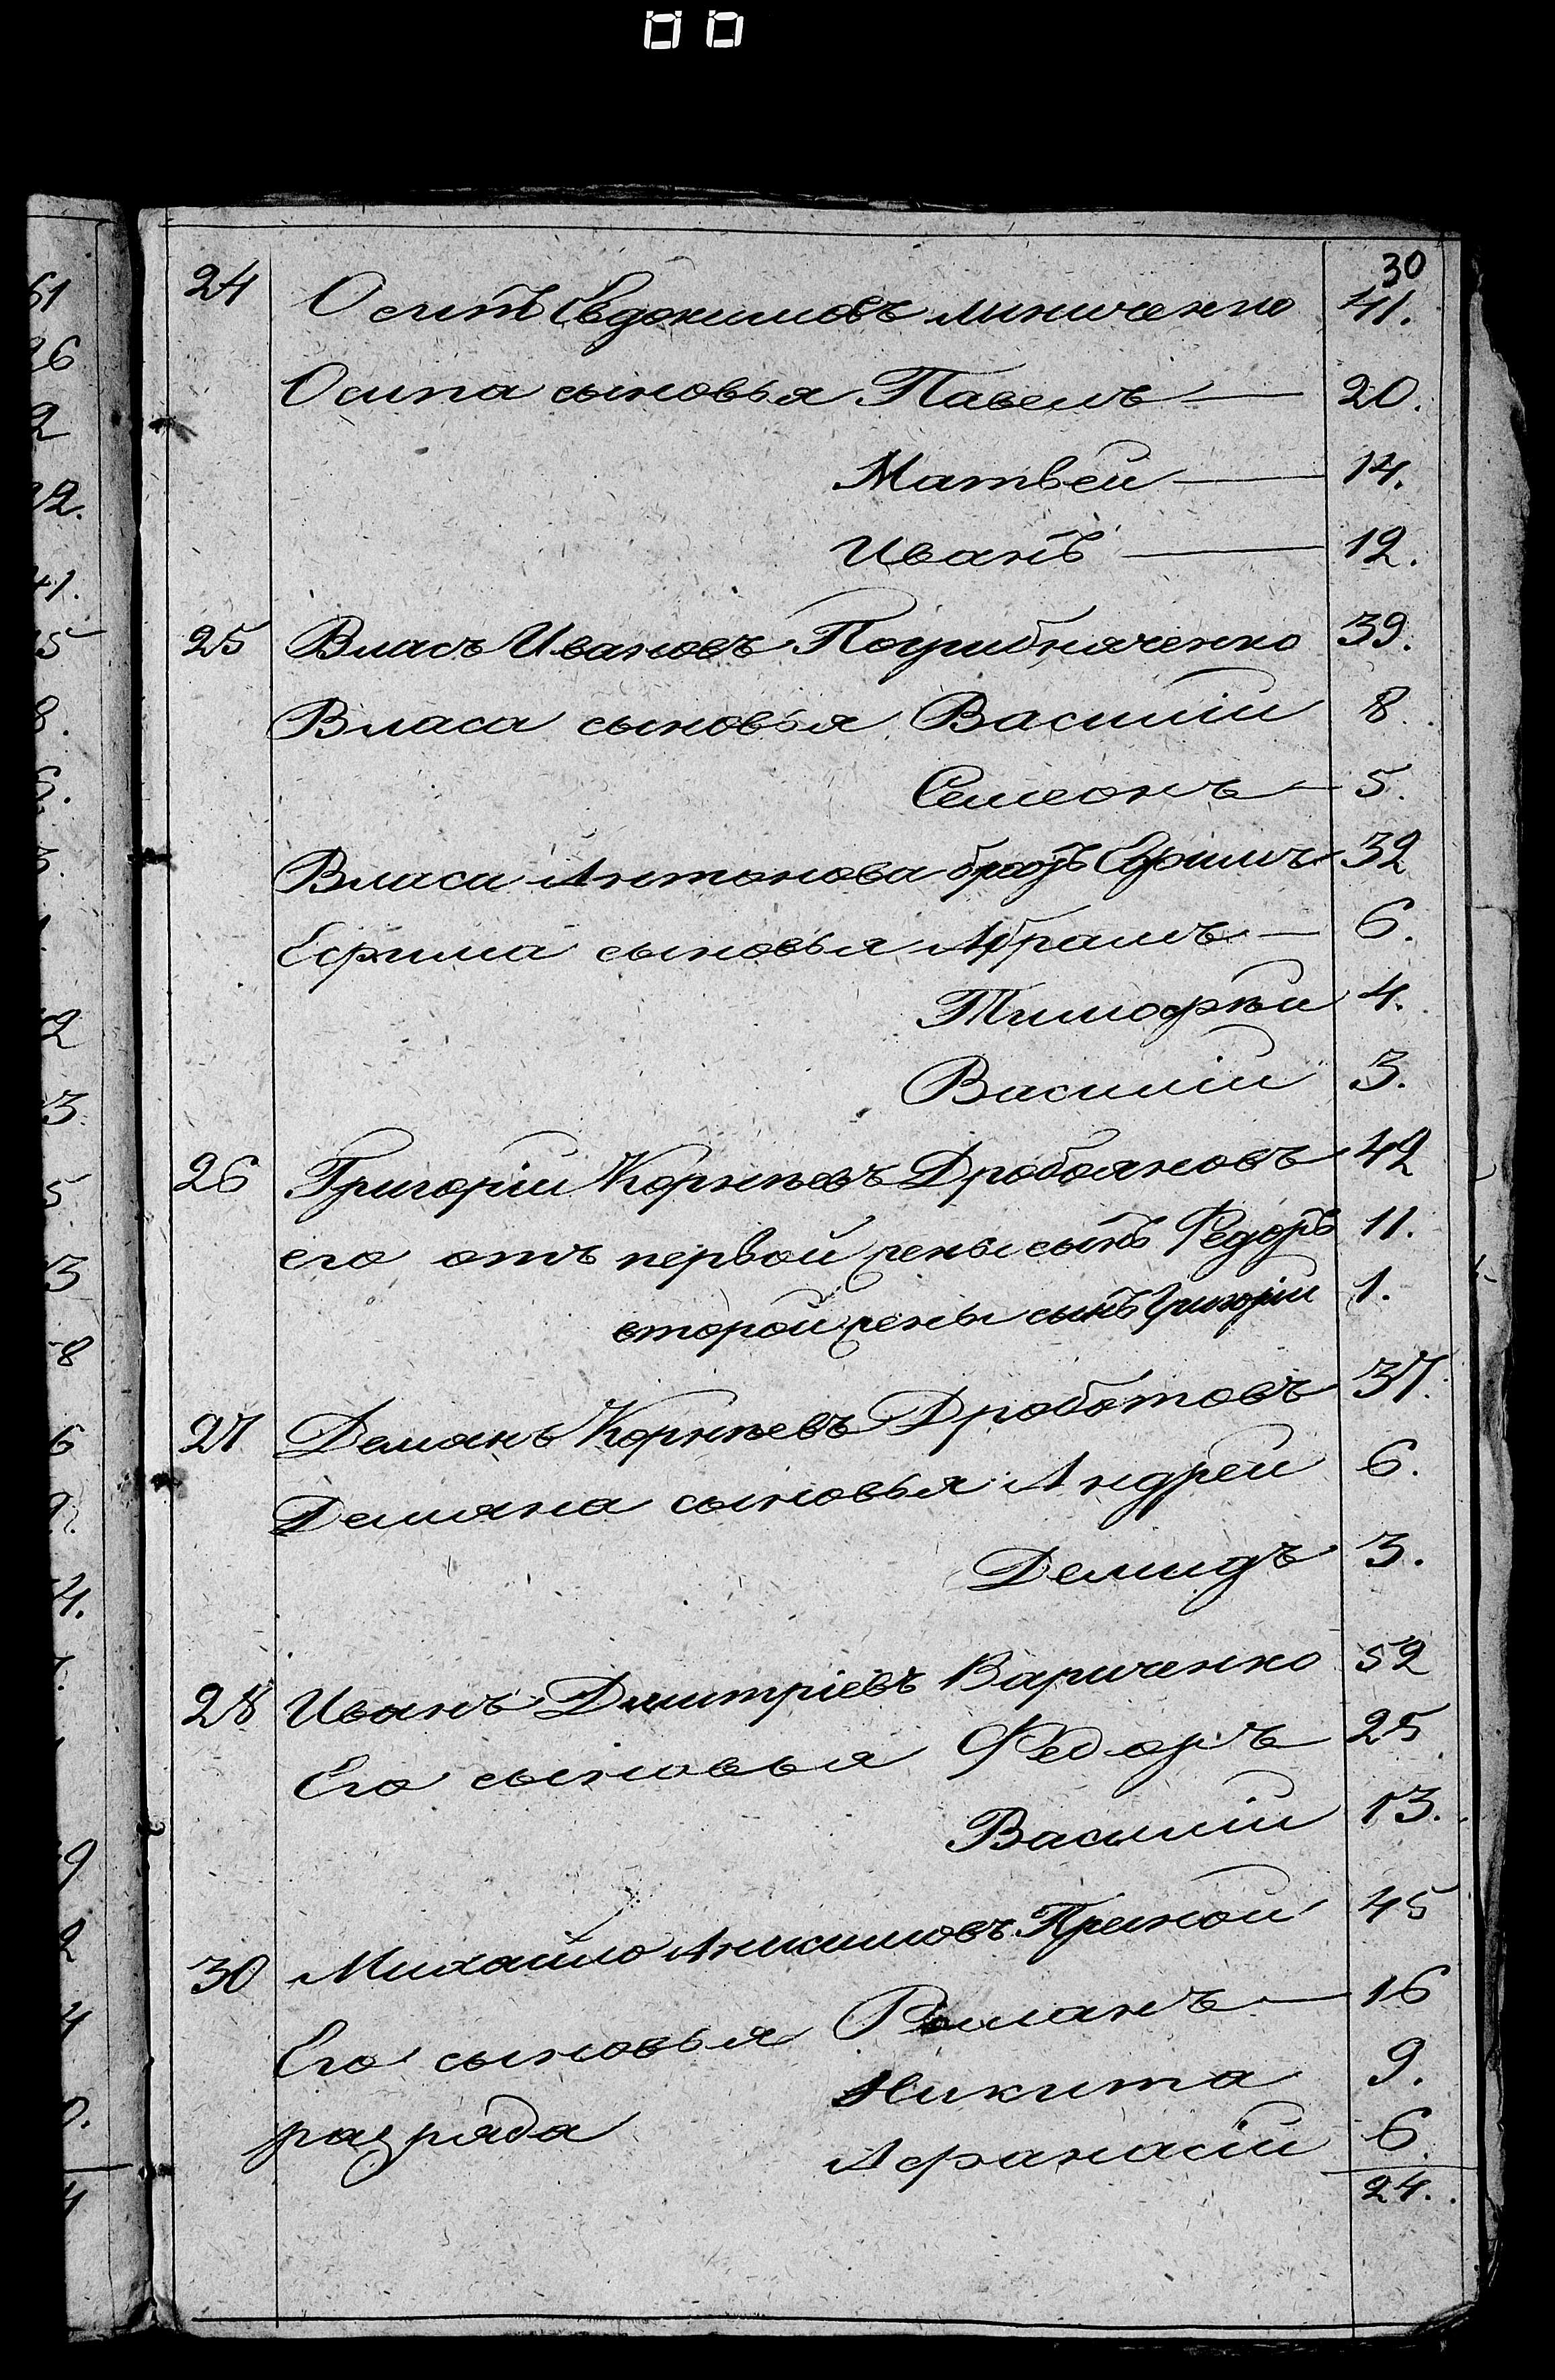 30
24 Осипъ Евдокимовъ миниченко 41.
Осипа сыновья Павелъ — 20.
Матвей — 14.
Иванъ — 12.
25 Власъ Ивановъ Погрибняченко 39.
Власа сыновья Василіи 8.
Семеонъ — 5.
Власа Антонова братъ Ефимъ 32
Ефима сыновья Абрамъ — 6.
Тимофѣи 4.
Василіи 3.
26 Григоріи Корнѣевъ 42
его отъ первой жены сынъ Федоръ 11.
второй жены сынъ Григоріи 1.
27 Демянъ Корнѣевъ Дроботовъ 37.
Демяна сыновья Андреи 6.
Демидъ 3.
28 Иванъ Дмитріевъ Вариченко 52
Его сыновья Федоръ 25
Василіи 13.
30 Михаило 45
Его сыновья Романъ — 16
Никита 9.
разряда Афанасіи 6.
24.
61
26
2
22.
41.
5
8.
6.
2
3.
5
3
8
6
2.
4.
9
2
4
0.
4